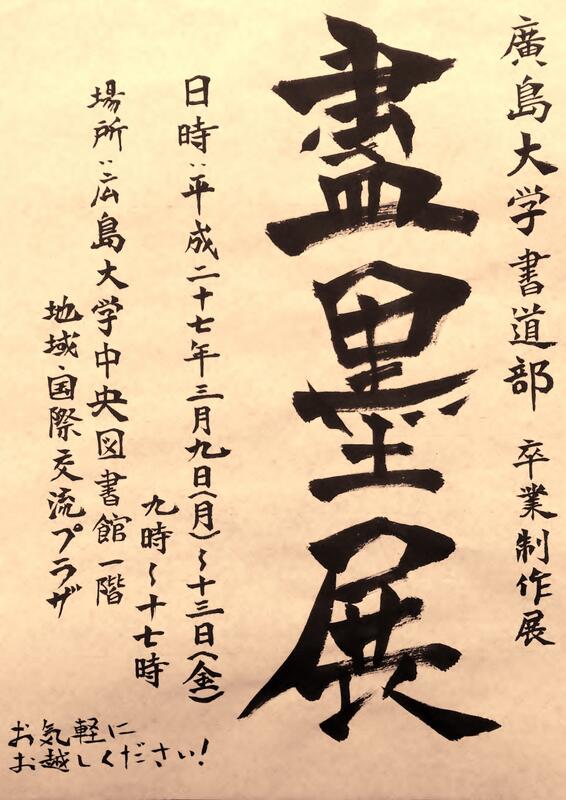 廣島大学書道部 卒業制作展
盡墨展
日時：平成二十七年三月九日（月）〜十三日（金）
九時〜十七時
場所：広島大学中央図書館一階
地域・国際交流プラザ
お気軽に
お越しください！